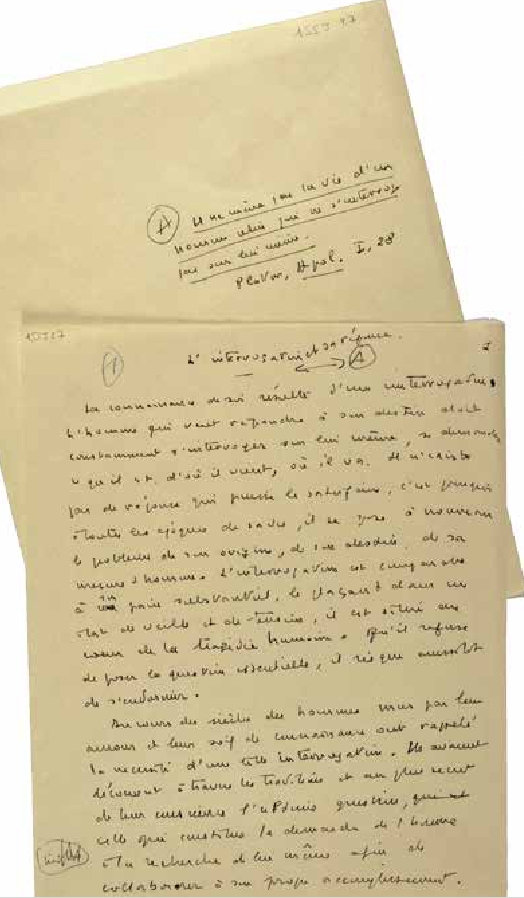 1559 27
(A) Une mène pas la vie d'un
homme celui qui ne s'interroge
pas sur lui même.
Platon, Apol. I, 28
15527
(1)
L'interrogation et sa réponse.
(A)
1
La connaissance de soi résulte d'une interrogation,
L'homme qui veut répondre à son destin doit
constamment s'interroger sur lui même, se demander
ce qu'il est, d'où il vient, où il va. Il n'existe
pas de réponse qui puisse le satisfaire, c'est pourquoi
à toutes les époques de sa vie, il se pose à nouveau
le problème de son origine, de sa destinée, de son
d'homme. L'interrogation est comparable
à un pain substantiel, le plaçant dans un
état de veille et de tension, il est situé au
coeur de la tragédie humaine. Qu'il refuse
de poser la question essentielle, il risque aussitôt
de s'endormir.
Au cours des siècles des hommes mus par leur
amour et leur soif de connaissance ont rappelé
la nécessité d'une telle interrogation. Ils avaient
découvert à travers les traditions et au plus secret
de leur conscience l'ultime question,
celle qui constitue la demande de l'homme
à la recherche de lui même afin de
collaborer à son propre accomplissement.